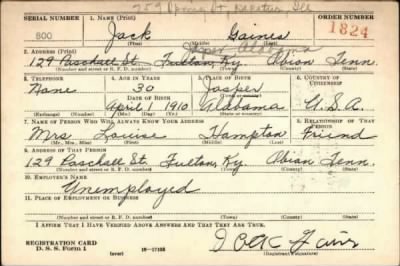 759 Spring St Decatur Ill
SERIAL NUMBER 1. NAME (Print) ORDER NUMBER
800 Jack Gaines 1824
(First) (Middle) (Last)
Jasper Alabama
2. ADDRESS (Print)
129 Paschall St. Fulton, Ky. Obion Tenn.
(Number and street or R. F. D. number) (Town) (County) (State)
3. TELEPHONE 4. AGE IN YEARS 5. PLACE OF BIRTH 6. COUNTRY OF CITIZENSHIP
None 30 Jasper
DATE OF BIRTH (Town or county)
April 1 1910 Alabama U.S.A.
(Exchange) (Number) (Mo.) (Day) (Yr.) (State or country)
7. NAME OF PERSON WHO WILL ALWAYS KNOW YOUR ADDRESS 8. RELATIONSHIP OF THAT PERSON
Mrs Louise Hampton Friend
(Mr., Mrs., Miss) (First) (Middle) (Last)
9. ADDRESS OF THAT PERSON
129 Paschall St. Fulton, Ky. Obion Tenn.
(Number and street or R. F. D. number) (Town) (County) (State)
10. EMPLOYER'S NAME
Unemployed
11. PLACE OF EMPLOYMENT OR BUSINESS
(Number and street or R. F. D. number) (Town) (County) (State)
I AFFIRM THAT I HAVE VERIFIED ABOVE ANSWERS AND THAT THEY ARE TRUE.
REGISTRATION CARD
D. S. S. Form 1 (over) 16-17105 (Registrant's signature)